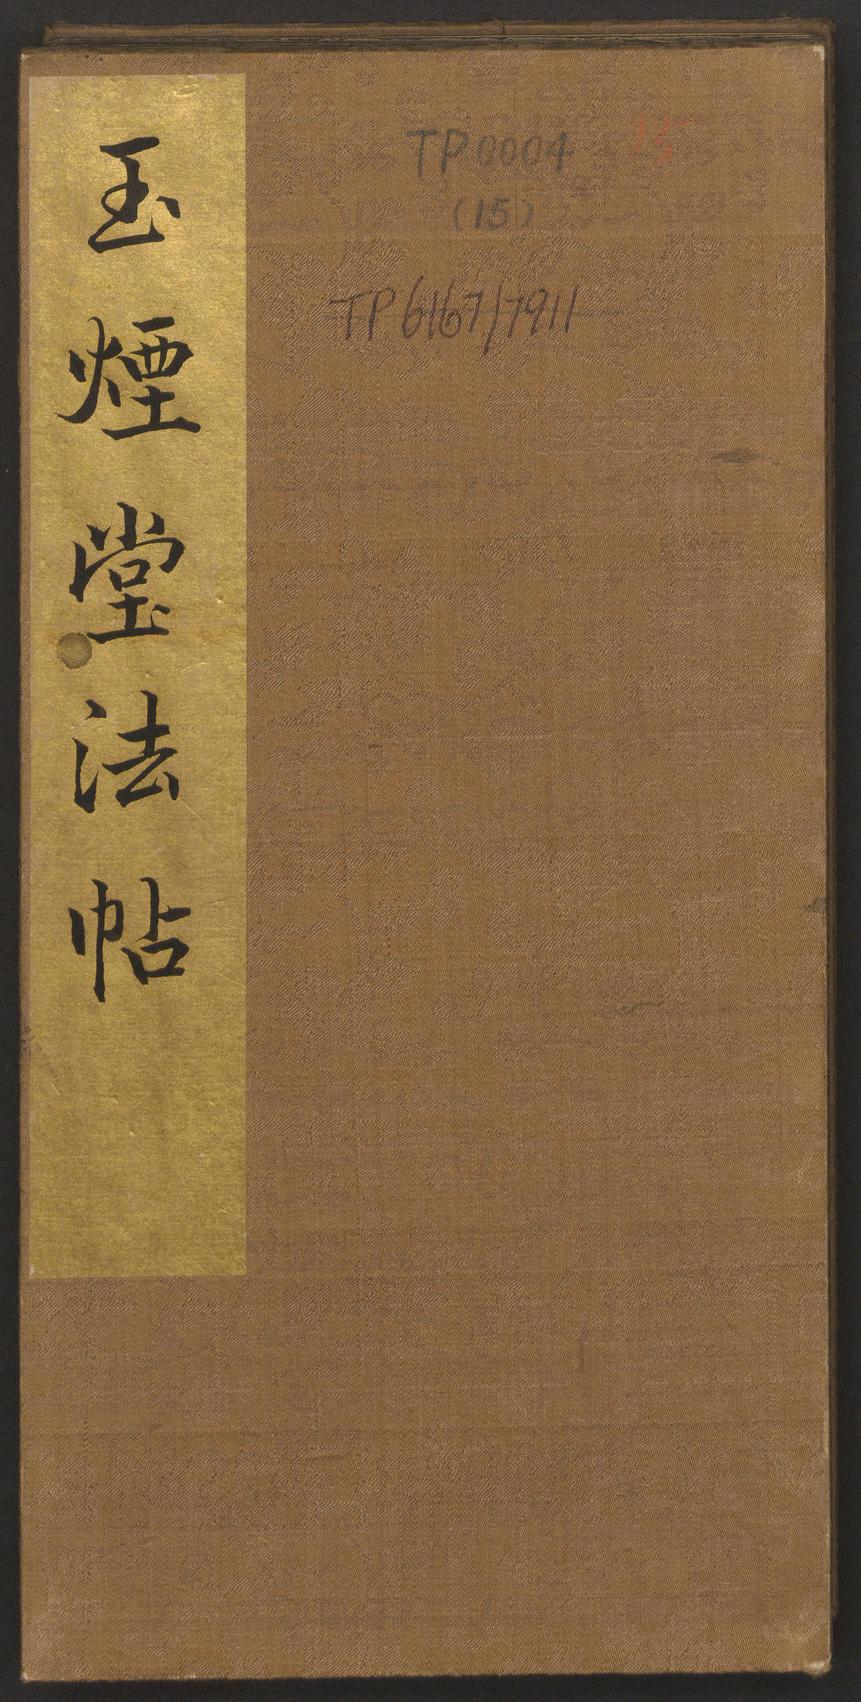 玉煙堂法帖
TP0004
15
(15)
TP6167/7911